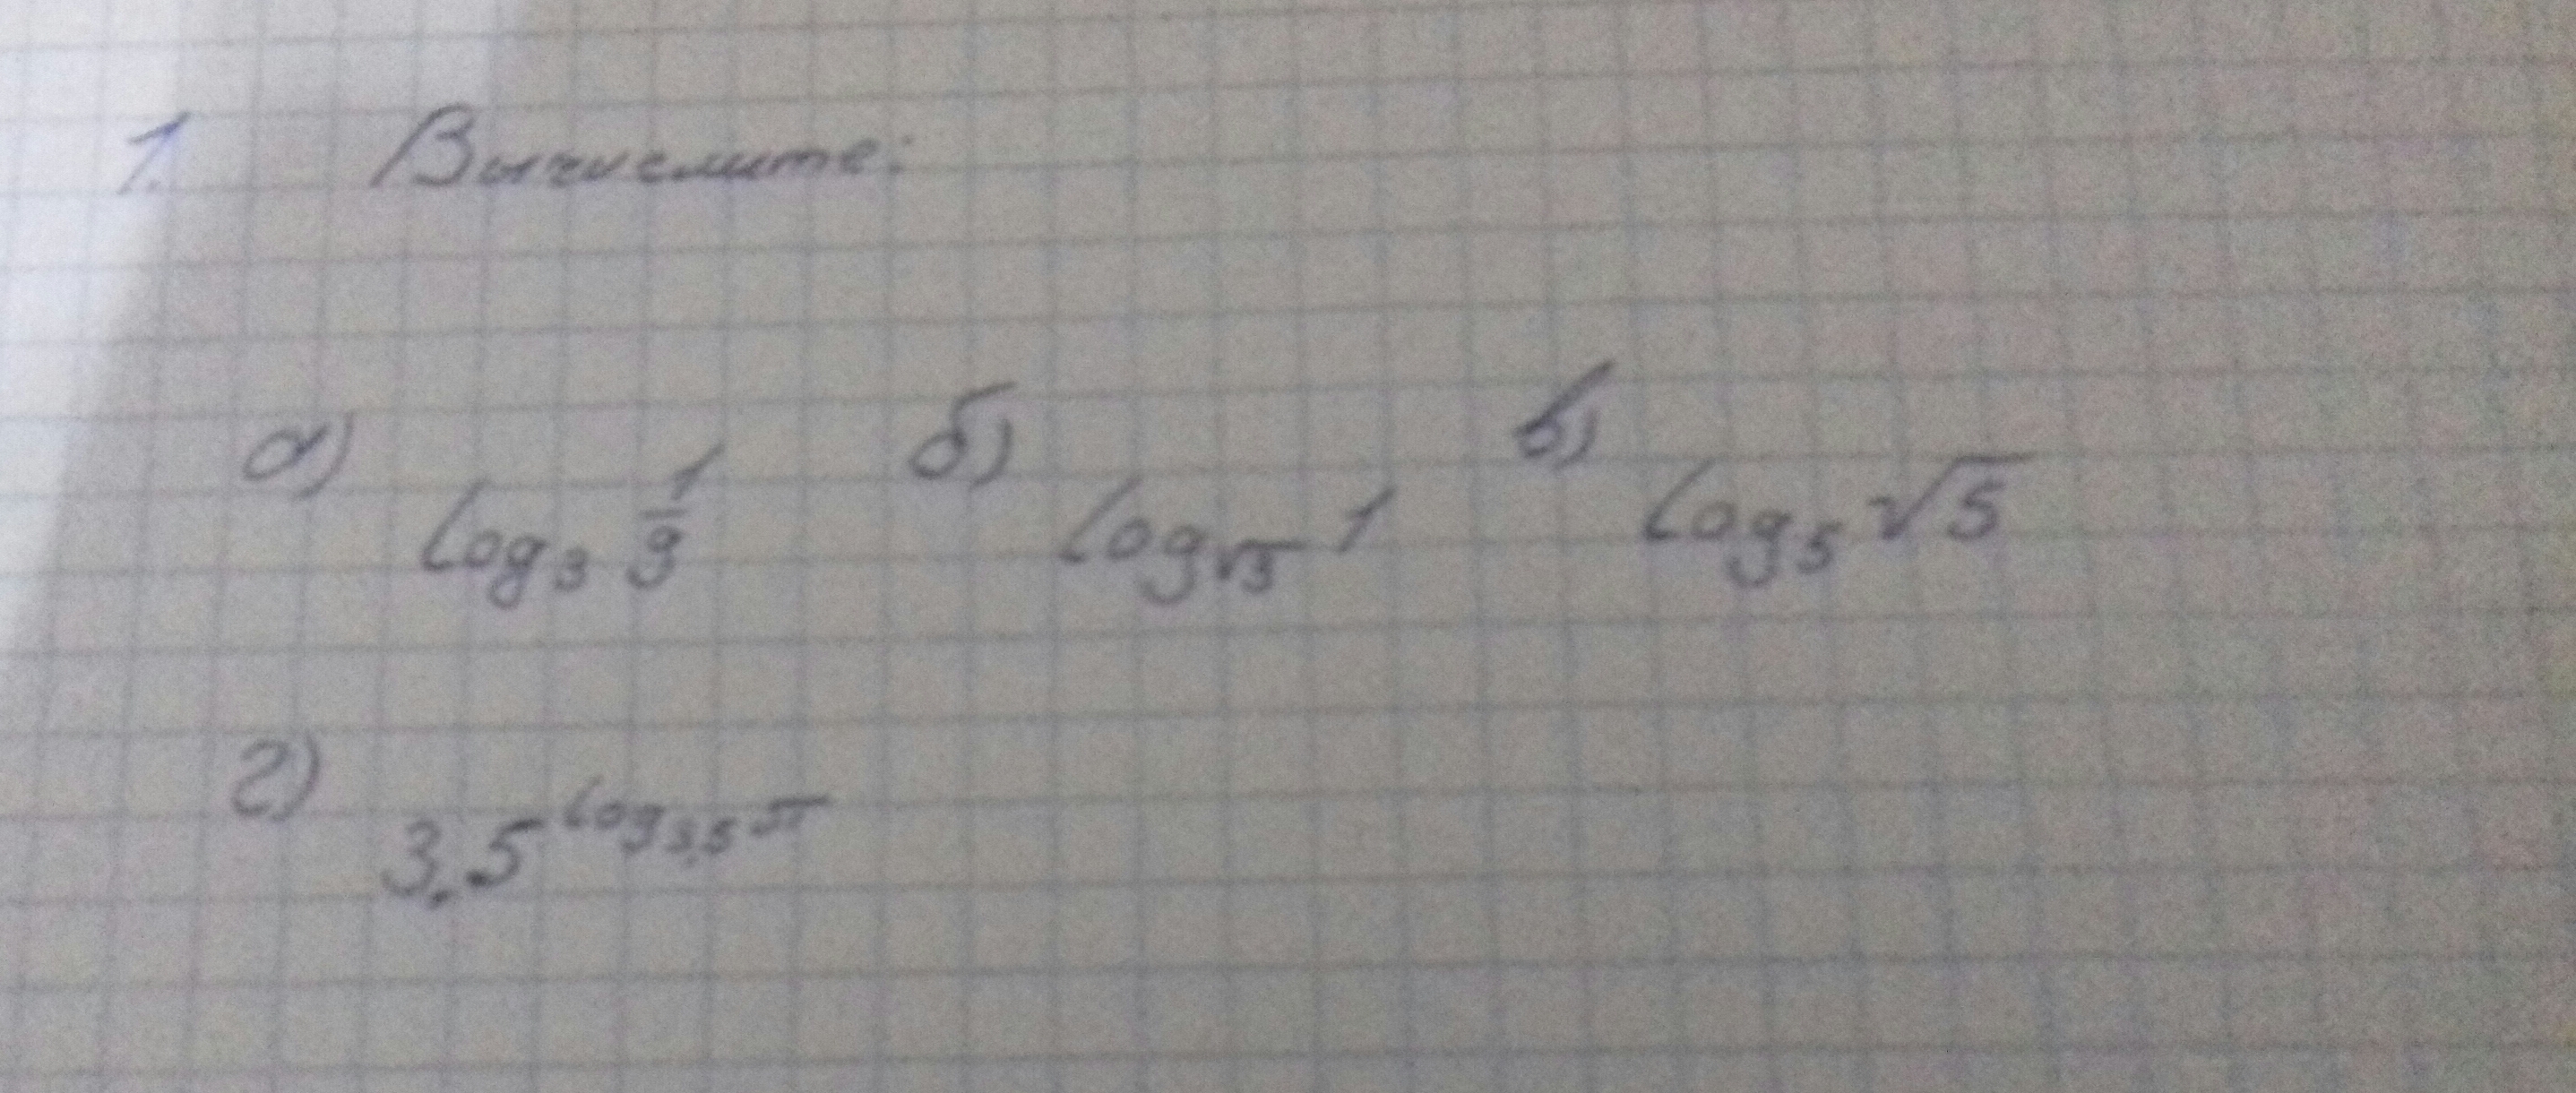 1. Вычислите:
а) log₃ 1/9 б) log_√3 1 в) log₅ √5
г) 3,5^(log_3,5 π)